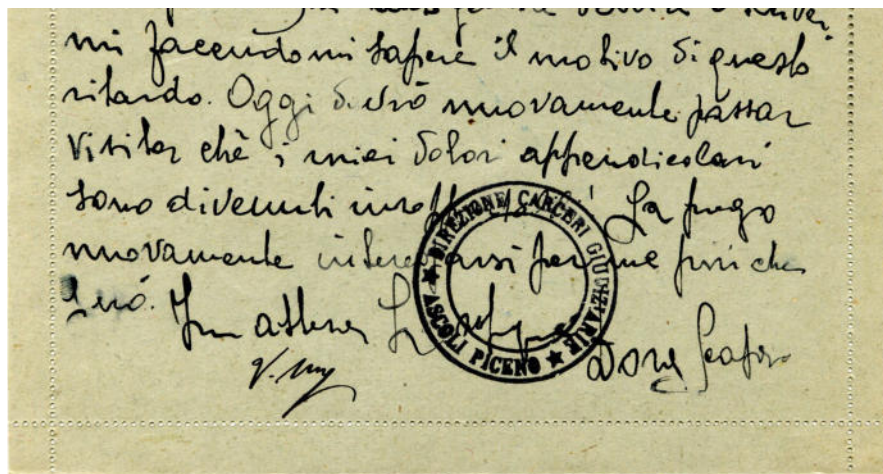 mi facendomi sapere il motivo di questo
ritardo. Oggi dovrò nuovamente passar
visita chè i miei dolori appendicolari
sono divenuti La prego
nuovamente interessarsi per me più che
può.
In attesa
DIREZIONE CARCERI GIUDIZIARIE
ASCOLI PICENO